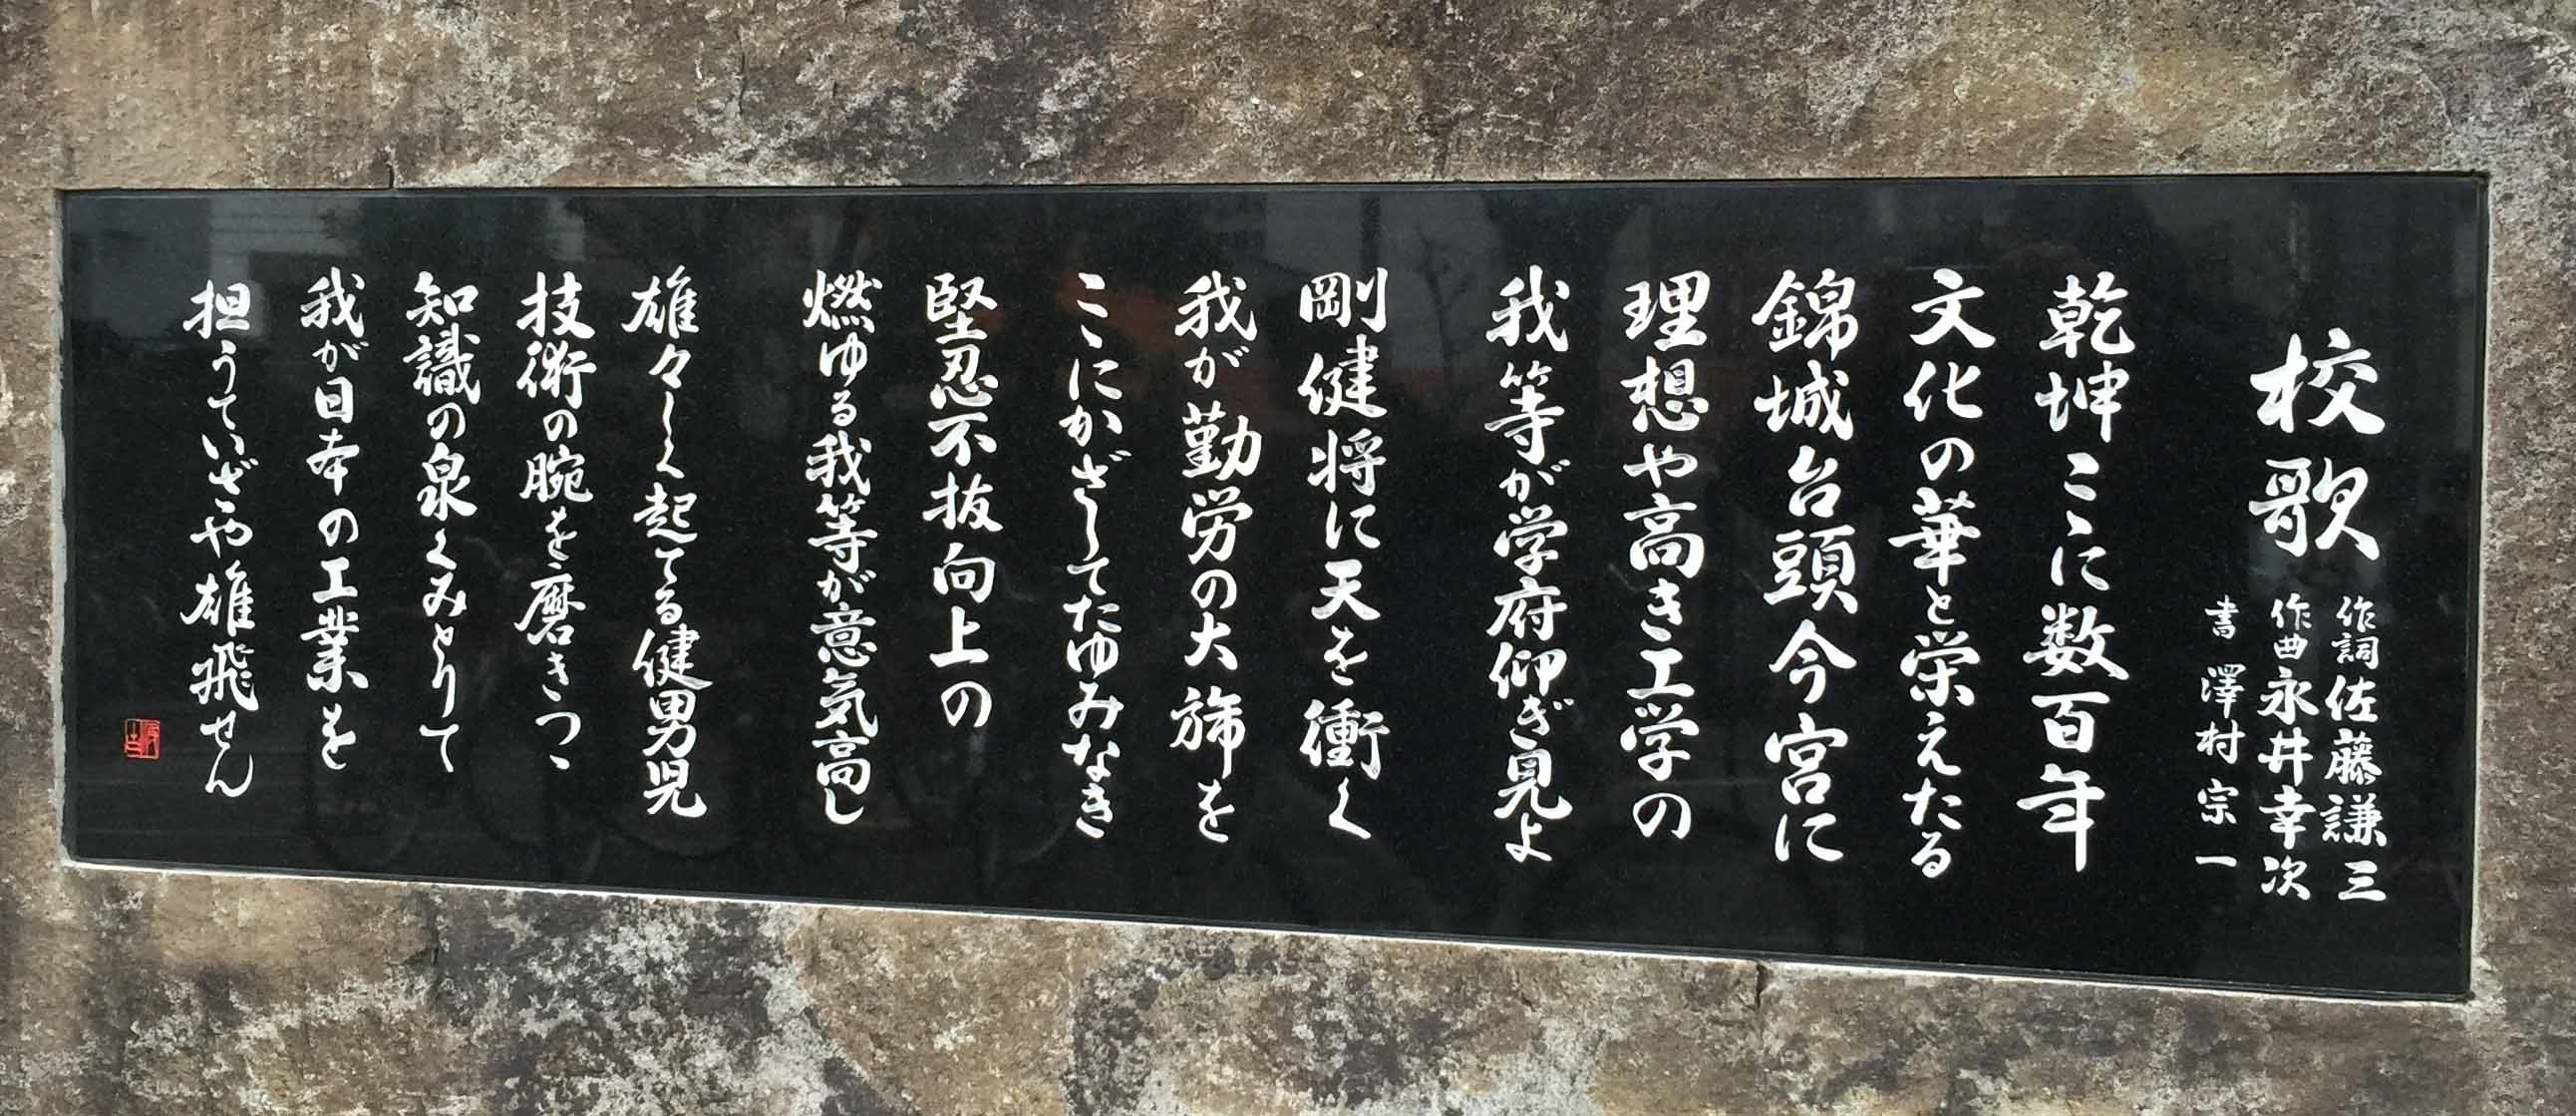 校歌
作詞 佐藤謙三
作曲 永井幸次
書 澤村宗一
乾坤こゝに数百年
文化の華と栄えたる
錦城台頭今宮に
理想や高き工学の
我等が学府仰ぎ見よ
剛健将に天を衝く
我が勤労の大旆を
こゝにかざしてたゆみなき
堅忍不抜向上の
燃ゆる我等が意気高し
雄々しく起てる健男児
技術の腕を磨きつゝ
知識の泉くみとりて
我が日本の工業を
担うていざや雄飛せん